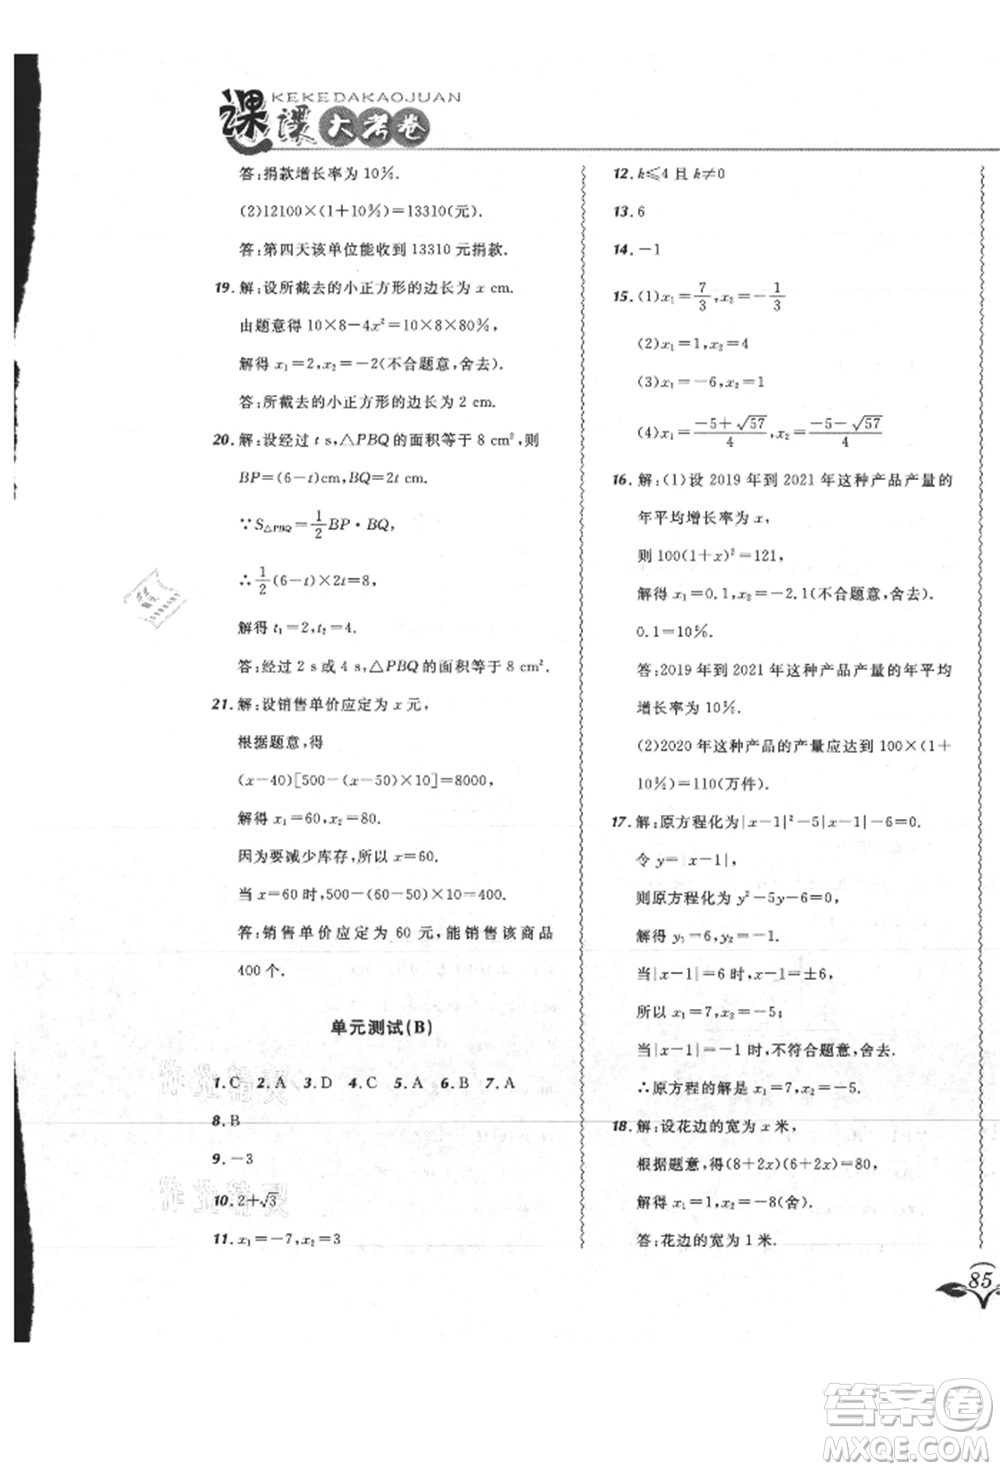 KEKEDAKAOJUAN
课课大考卷
答:捐款增长率为10%.
(2)12100×(1+10%)=13310(元).
答:第四天该单位能收到13310元捐款.
19.解:设所截去的小正方形的边长为x cm.
由题意得10×8-4x²=10×8×80%,
解得x₁=2,x₂=-2(不合题意,舍去).
答:所截去的小正方形的边长为2 cm.
20.解:设经过t s,△PBQ的面积等于8 cm²,则
BP=(6-t)cm,BQ=2t cm.
∵S△PBQ=1/2 BP·BQ,
∴1/2(6-t)×2t=8,
解得t₁=2,t₂=4.
答:经过2 s或4 s,△PBQ的面积等于8 cm².
21.解:设销售单价应定为x元,
根据题意,得
(x-40)[500-(x-50)×10]=8000,
解得x₁=60,x₂=80.
因为要减少库存,所以x=60.
当x=60时,500-(60-50)×10=400.
答:销售单价应定为60元,能销售该商品
400个.
单元测试(B)
1.C 2.A 3.D 4.C 5.A 6.B 7.A
8.B
9.-3
10.2+√3
11.x₁=-7,x₂=3
12.k≤4且k≠0
13.6
14.-1
15.(1)x₁=7/3,x₂=-1/3
(2)x₁=1,x₂=4
(3)x₁=-6,x₂=1
(4)x₁=(-5+√57)/4,x₂=(-5-√57)/4
16.解:(1)设2019年到2021年这种产品产量的
年平均增长率为x,
则100(1+x)²=121,
解得x₁=0.1,x₂=-2.1(不合题意,舍去).
0.1=10%.
答:2019年到2021年这种产品产量的年平均
增长率为10%.
(2)2020年这种产品的产量应达到100×(1+
10%)=110(万件).
17.解:原方程化为|x-1|²-5|x-1|-6=0.
令y=|x-1|,
则原方程化为y²-5y-6=0,
解得y₁=6,y₂=-1.
当|x-1|=6时,x-1=±6,
所以x₁=7,x₂=-5;
当|x-1|=-1时,不符合题意,舍去.
∴原方程的解是x₁=7,x₂=-5.
18.解:设花边的宽为x米,
根据题意,得(8+2x)(6+2x)=80,
解得x₁=1,x₂=-8(舍).
答:花边的宽为1米.
85
答案圈
MXQE.COM